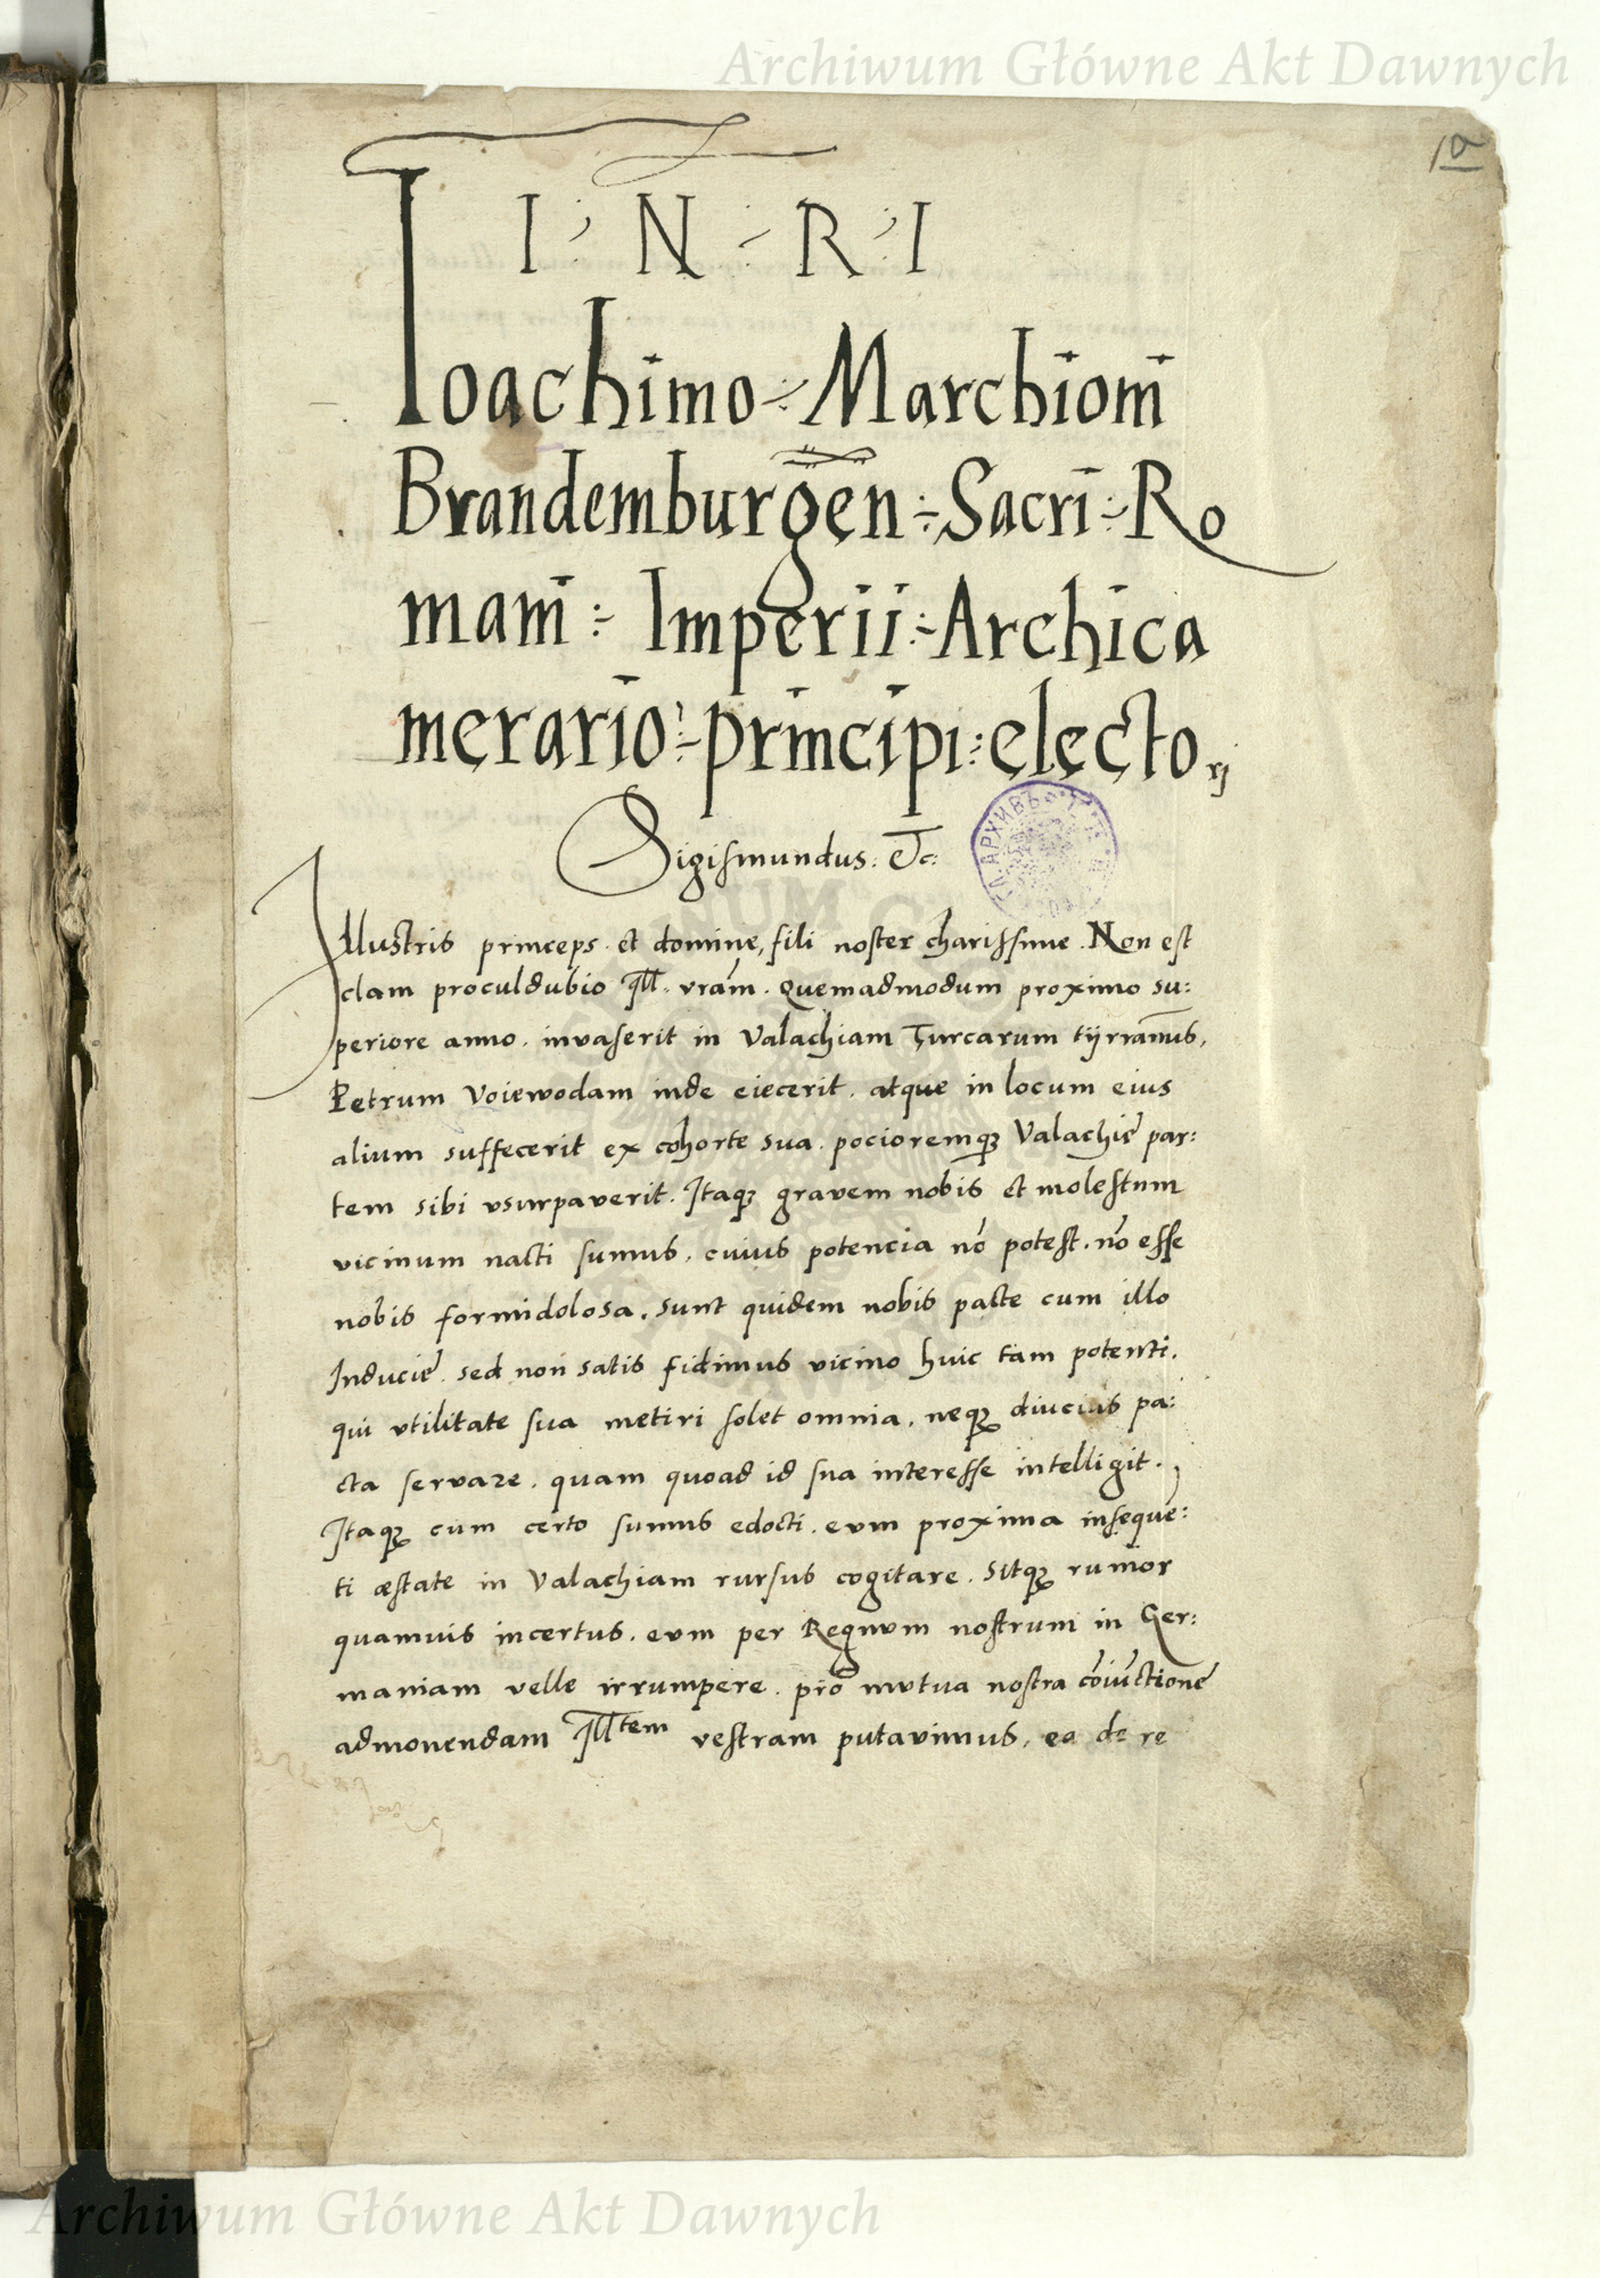 Archiwum Główne Akt Dawnych
1a
I · N · R · I
Ioachimo · Marchioni
Brandemburgēn · Sacri · Ro
mani · Imperii · Archica
merario · principi · electo rj
Sigismundus. Etc:
Illustris princeps et domine, fili noster charissime. Non est
clam proculdubio Ill. vrām. Quemadmodum proximo su:
periore anno. invaserit in Valachiam Turcarum tÿrannus,
Petrum Voiewodam inde eiecerit. atque in locum eius
alium suffecerit ex cohorte sua. pocioremqꝫ Valachię par:
tem sibi vsurpaverit. Itaqꝫ gravem nobis et molestum
vicinum nacti sumus. cuius potencia nō potest. nō esse
nobis formidolosa. sunt quidem nobis pacte cum illo
Inducie. sed non satis fidimus vicino huic tam potenti.
qui vtilitate sua metiri solet omnia. neqꝫ diucius pa:
cta servare. quam quoad id sua interesse intelligit.
Itaqꝫ cum certo sumus edocti. eum proxima insequē:
ti æstate in Valachiam rursus cogitare. sitqꝫ rumor
quamuis incertus. eum per Regnum nostrum in Ger:
maniam velle irrumpere. prō mutua nostra cōiūctionē
admonendam Illtem vestram putavimus. ea de re
Archiwum Główne Akt Dawnych